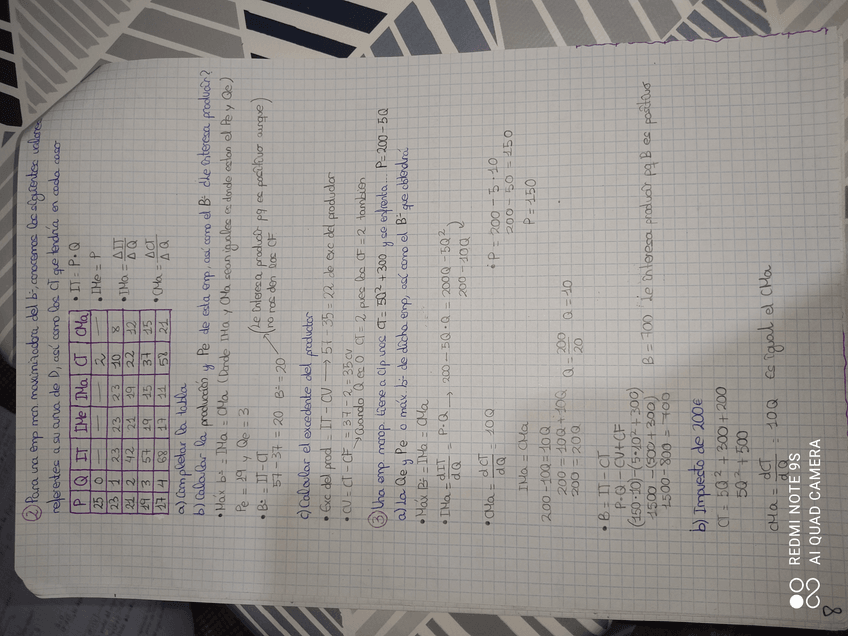 ② Para una emp mon maximizadora del bº, conocemos los siguientes valores
referentes a su curva de D, así como los CT que tendría en cada caso
P Q IT IMe IMa CT CMa
25 0 — — — 2 —
23 1 23 23 23 10 8
21 2 42 21 19 22 12
19 3 57 19 15 37 15
17 4 68 17 11 58 21
• IT = P·Q
• IMe = P
• IMa = ΔIT / ΔQ
• CMa = ΔCT / ΔQ
a) Completar la tabla
b) Calcular la producción y Pe de esta emp, así como el Bº ¿le interesa producir?
• Máx bº: IMa = CMa (Donde IMa y CMa sean iguales es donde están el Pe y Qe)
Pe = 19 y Qe = 3
• Bº = IT - CT
57 - 37 = 20 Bº = 20 → (Le interesa producir pq es positivo aunque
no nos den los CF)
c) Calcular el excedente del productor
• Exc del prod = IT - CV → 57 - 35 = 22 de exc del productor
• CV = CT - CF = 37 - 2 = 35 CV
→ Cuando Q es 0 CT = 2 pues los CF = 2 también
③ Una emp monop tiene a c/p unos CT = 5Q² + 300 y se enfrenta... P = 200 - 5Q
a) La Qe y Pe o máx bº de dicha emp, así como el Bº que obtendrá
• Máx Bº: IMa = CMa
• IMa = dIT / dQ = P·Q → 200 - 5Q·Q = 200Q - 5Q²
200 - 10Q
• CMa = dCT / dQ = 10Q
• P = 200 - 5·10
200 - 50 = 150
P = 150
IMa = CMa
200 - 10Q = 10Q
200 = 10Q + 10Q
200 = 20Q
Q = 200 / 20 Q = 10
• B = IT - CT
P·Q - CV + CF
(150·10) - (5·10² + 300)
1500 - (500 + 300)
1500 - 800 = 700
B = 700 Le interesa producir pq B es positivo
b) Impuesto de 200€
CT = 5Q² + 300 + 200
5Q² + 500
CMa = dCT / dQ = 10Q Es igual el CMa
8
REDMI NOTE 9S
AI QUAD CAMERA